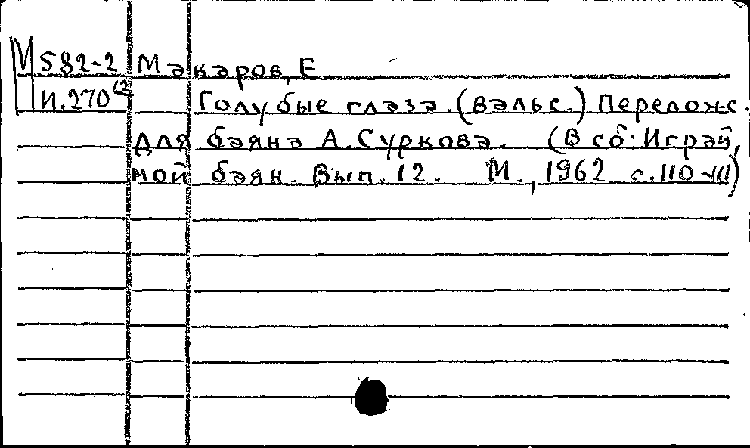 М 582-2 Макаров, Е
И.270 Голубые глаза. (вальс.) Перелож.
для баяна А. Суркова. (В сб: Играй,
мой баян. Вып. 12. М., 1962 с. 110-111)